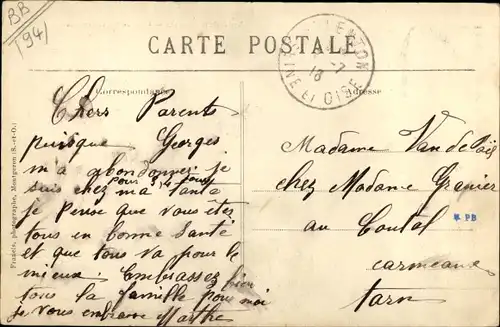 BB
(941
CARTE POSTALE
Correspondance
Adresse
SEINE ET OISE
18
Chers Parents
puisque Georges
m'a abondonner je
suis chez ma Tante
pour 3/4 jours
je pense que vous êtes
tous en bonne Santé
et que tous va pour le
mieux. Embrassez bien
tous la famille pour moi
je vous embrasse Marthe
Madame
chez Madame Granier
au Coutal
carmeaux
tarn
PB
photographe, Montgeron (S.-et-O.)